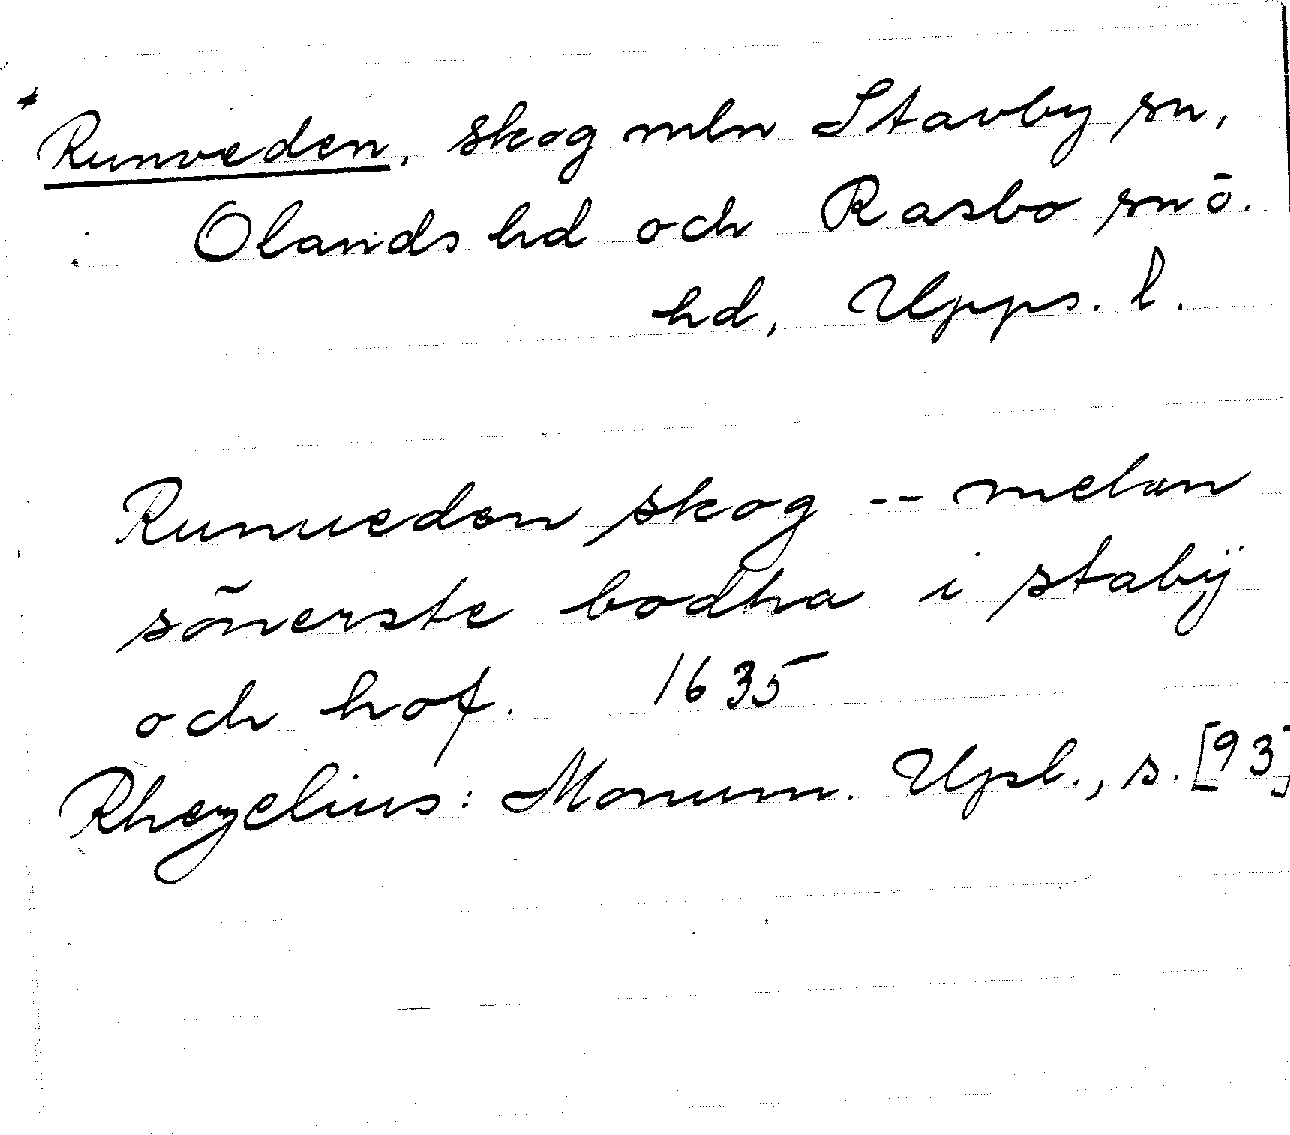 *Runveden, skog mln Stavby sn,
Olands hd och Rasbo sn o.
hd, Upps. l.
Runueden skog -- melan
sönerste bodha i stabÿ
och hof. 1635
Rhezelius: Monum. Upl., s. [93]